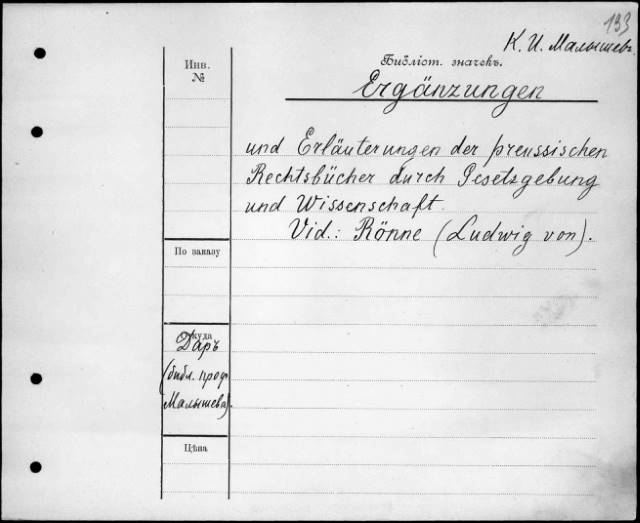 133
К. И. Малышевъ
Инв.
№
Библіот. значекъ.
Ergänzungen
und Erläuterungen der preussischen
Rechtsbücher durch Gesetzgebung
und Wissenschaft.
Vid.: Rönne (Ludwig von).
По заказу
Откуда
Даръ
(библ. проф.
Малышева).
Цѣна